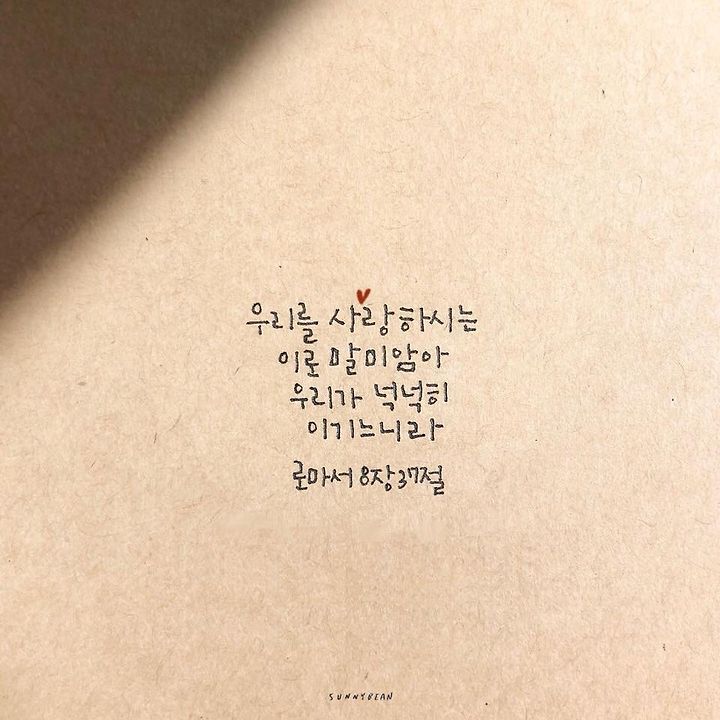 우리를 사랑하시는
이로 말미암아
우리가 넉넉히
이기느니라
로마서 8장 37절
SUNNYBEAN